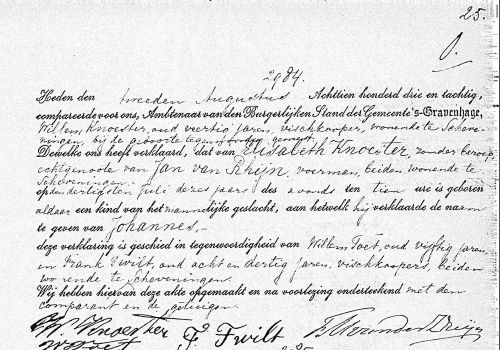 25.
2984.
Heden den tweeden Augustus Achttien honderd drie en tachtig,
compareerde voor ons, Ambtenaar van den Burgerlijken Stand der Gemeente 's-Gravenhage,
Willem Knoester, oud veertig jaren, vischkooper, wonende te Scheve-
ningen, bij de geboorte tegenwoordig geweest
Dewelke ons heeft verklaard, dat van Elisabeth Knoester, zonder beroep
echtgenoote van Jan van Rhijn, voerman, beiden wonende te
Scheveningen
op den dertigsten Juli dezes jaars des avonds ten tien ure is geboren
aldaar een kind van het mannelijke geslacht, aan hetwelk hij verklaarde de naam
te geven van Johannes.
deze verklaring is geschied in tegenwoordigheid van Willem Toet, oud vijftig jaren,
en Frank Fwilt, oud acht en dertig jaren, vischkoopers, beiden
wonende te Scheveningen
Wij hebben hiervan deze akte opgemaakt en na voorlezing onderteekend met den
comparant en de getuigen.
W. Knoester F. Fwilt
W. Toet